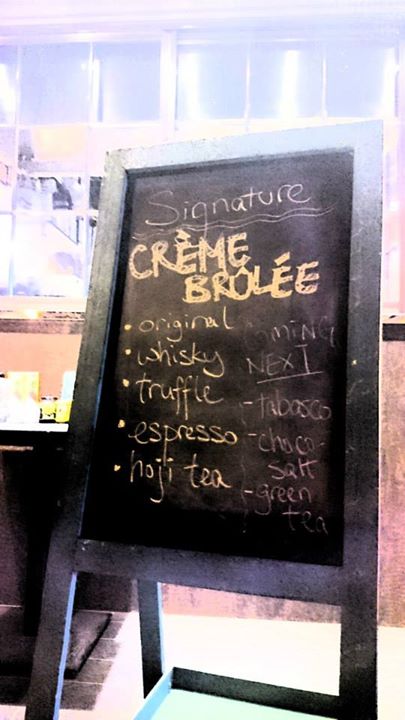 Signature
CRÈME
BRÛLÉE
• original
• whisky
• truffle
• espresso
• hoji tea
COMING
NEXT
- tabasco
- choco-
salt
- green
tea